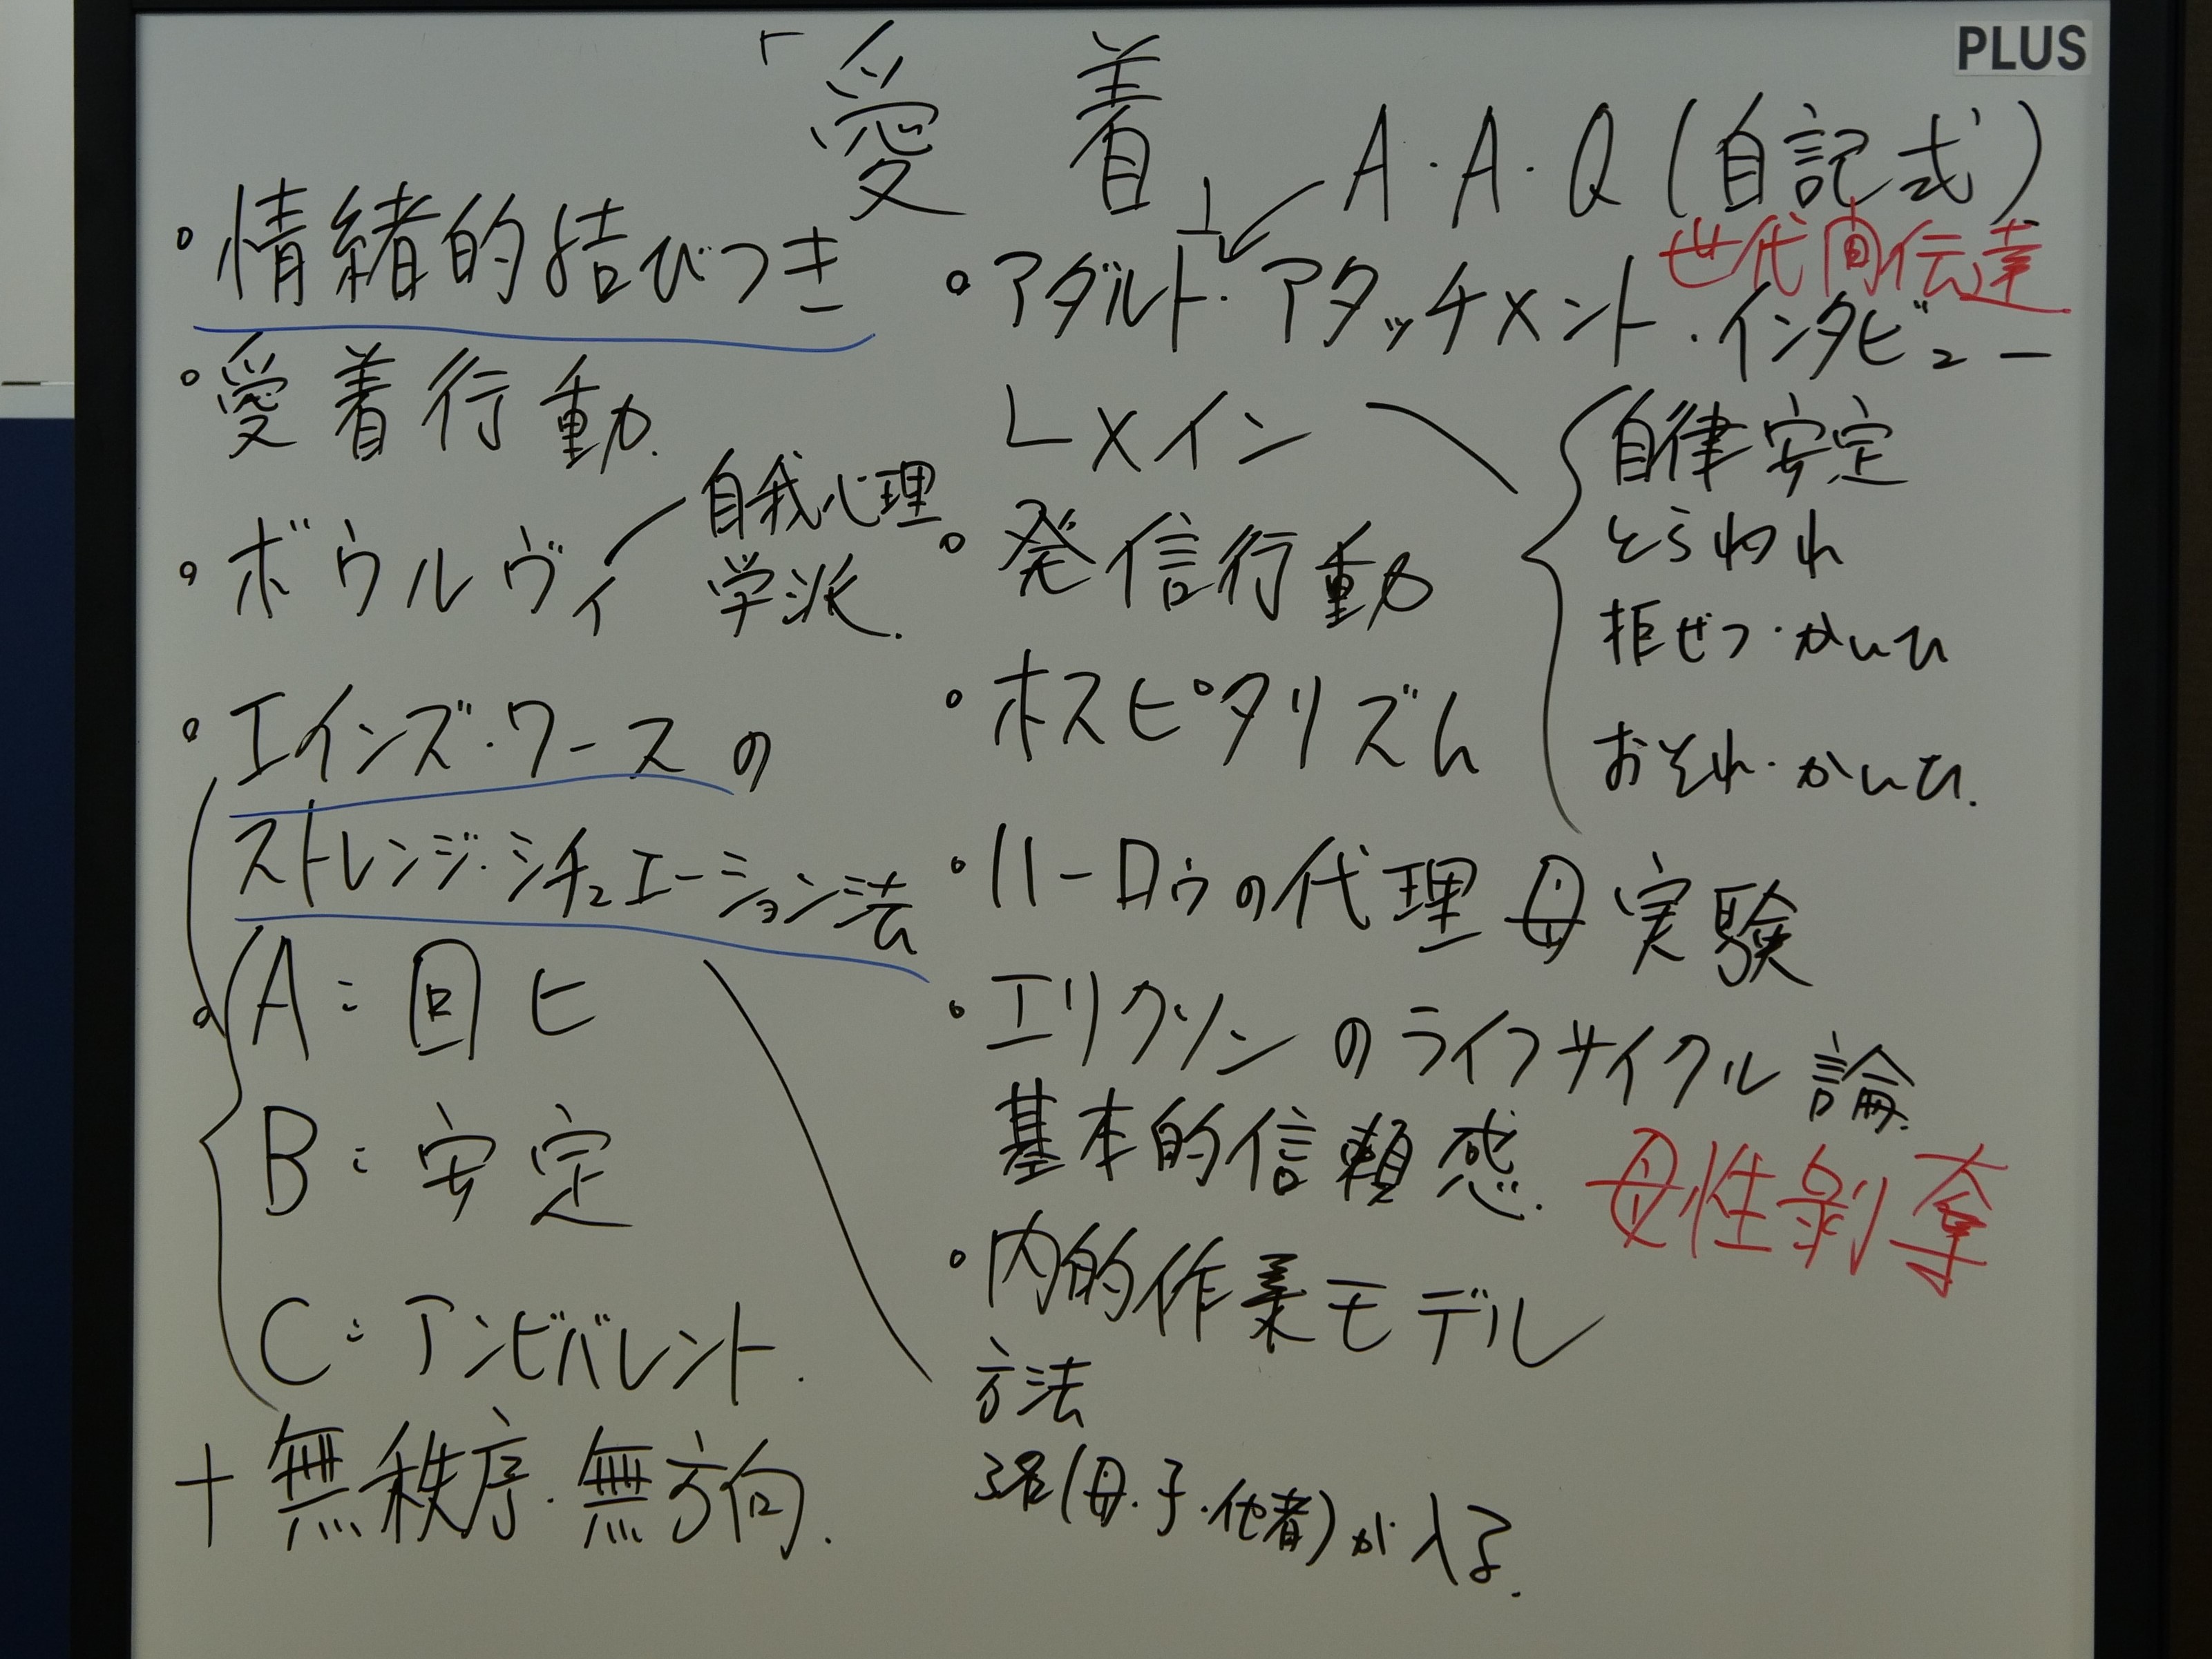 PLUS
「愛着」
・情緒的結びつき
・愛着行動.
・ボウルヴィ
自我心理
学派.
・エインズ・ワースの
ストレンジ・シチュエーション法
A:回ヒ
B:安定
C:アンビバレント.
+無秩序.無方向.
A・A・Q(自記式)
世代間伝達
・アダルト・アタッチメント・インタビュー
メイン
自律安定
とらわれ
拒ぜつ・かいひ
おそれ・かいひ.
・発信行動
・ホスピタリズム
・ハーロウの代理母実験
・エリクソンのライフサイクル論.
基本的信頼感.
母性剥奪
・内的作業モデル
方法
3名(母.子.他者)が入る.